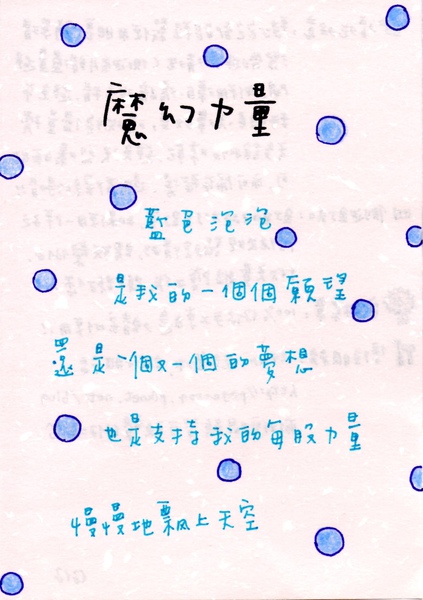 魔幻力量
藍色泡泡
是我的一個個願望
還是一個又一個的夢想
也是支持我的每股力量
慢慢地飄上天空